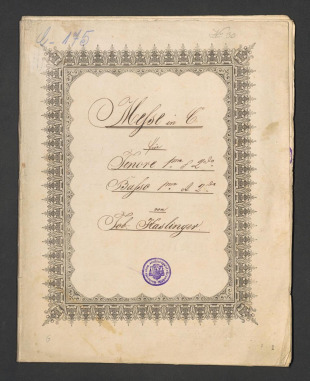 Messe in C
für
Tenore 1mo & 2do
Basso 1mo & 2do
von
Joh. Haslinger